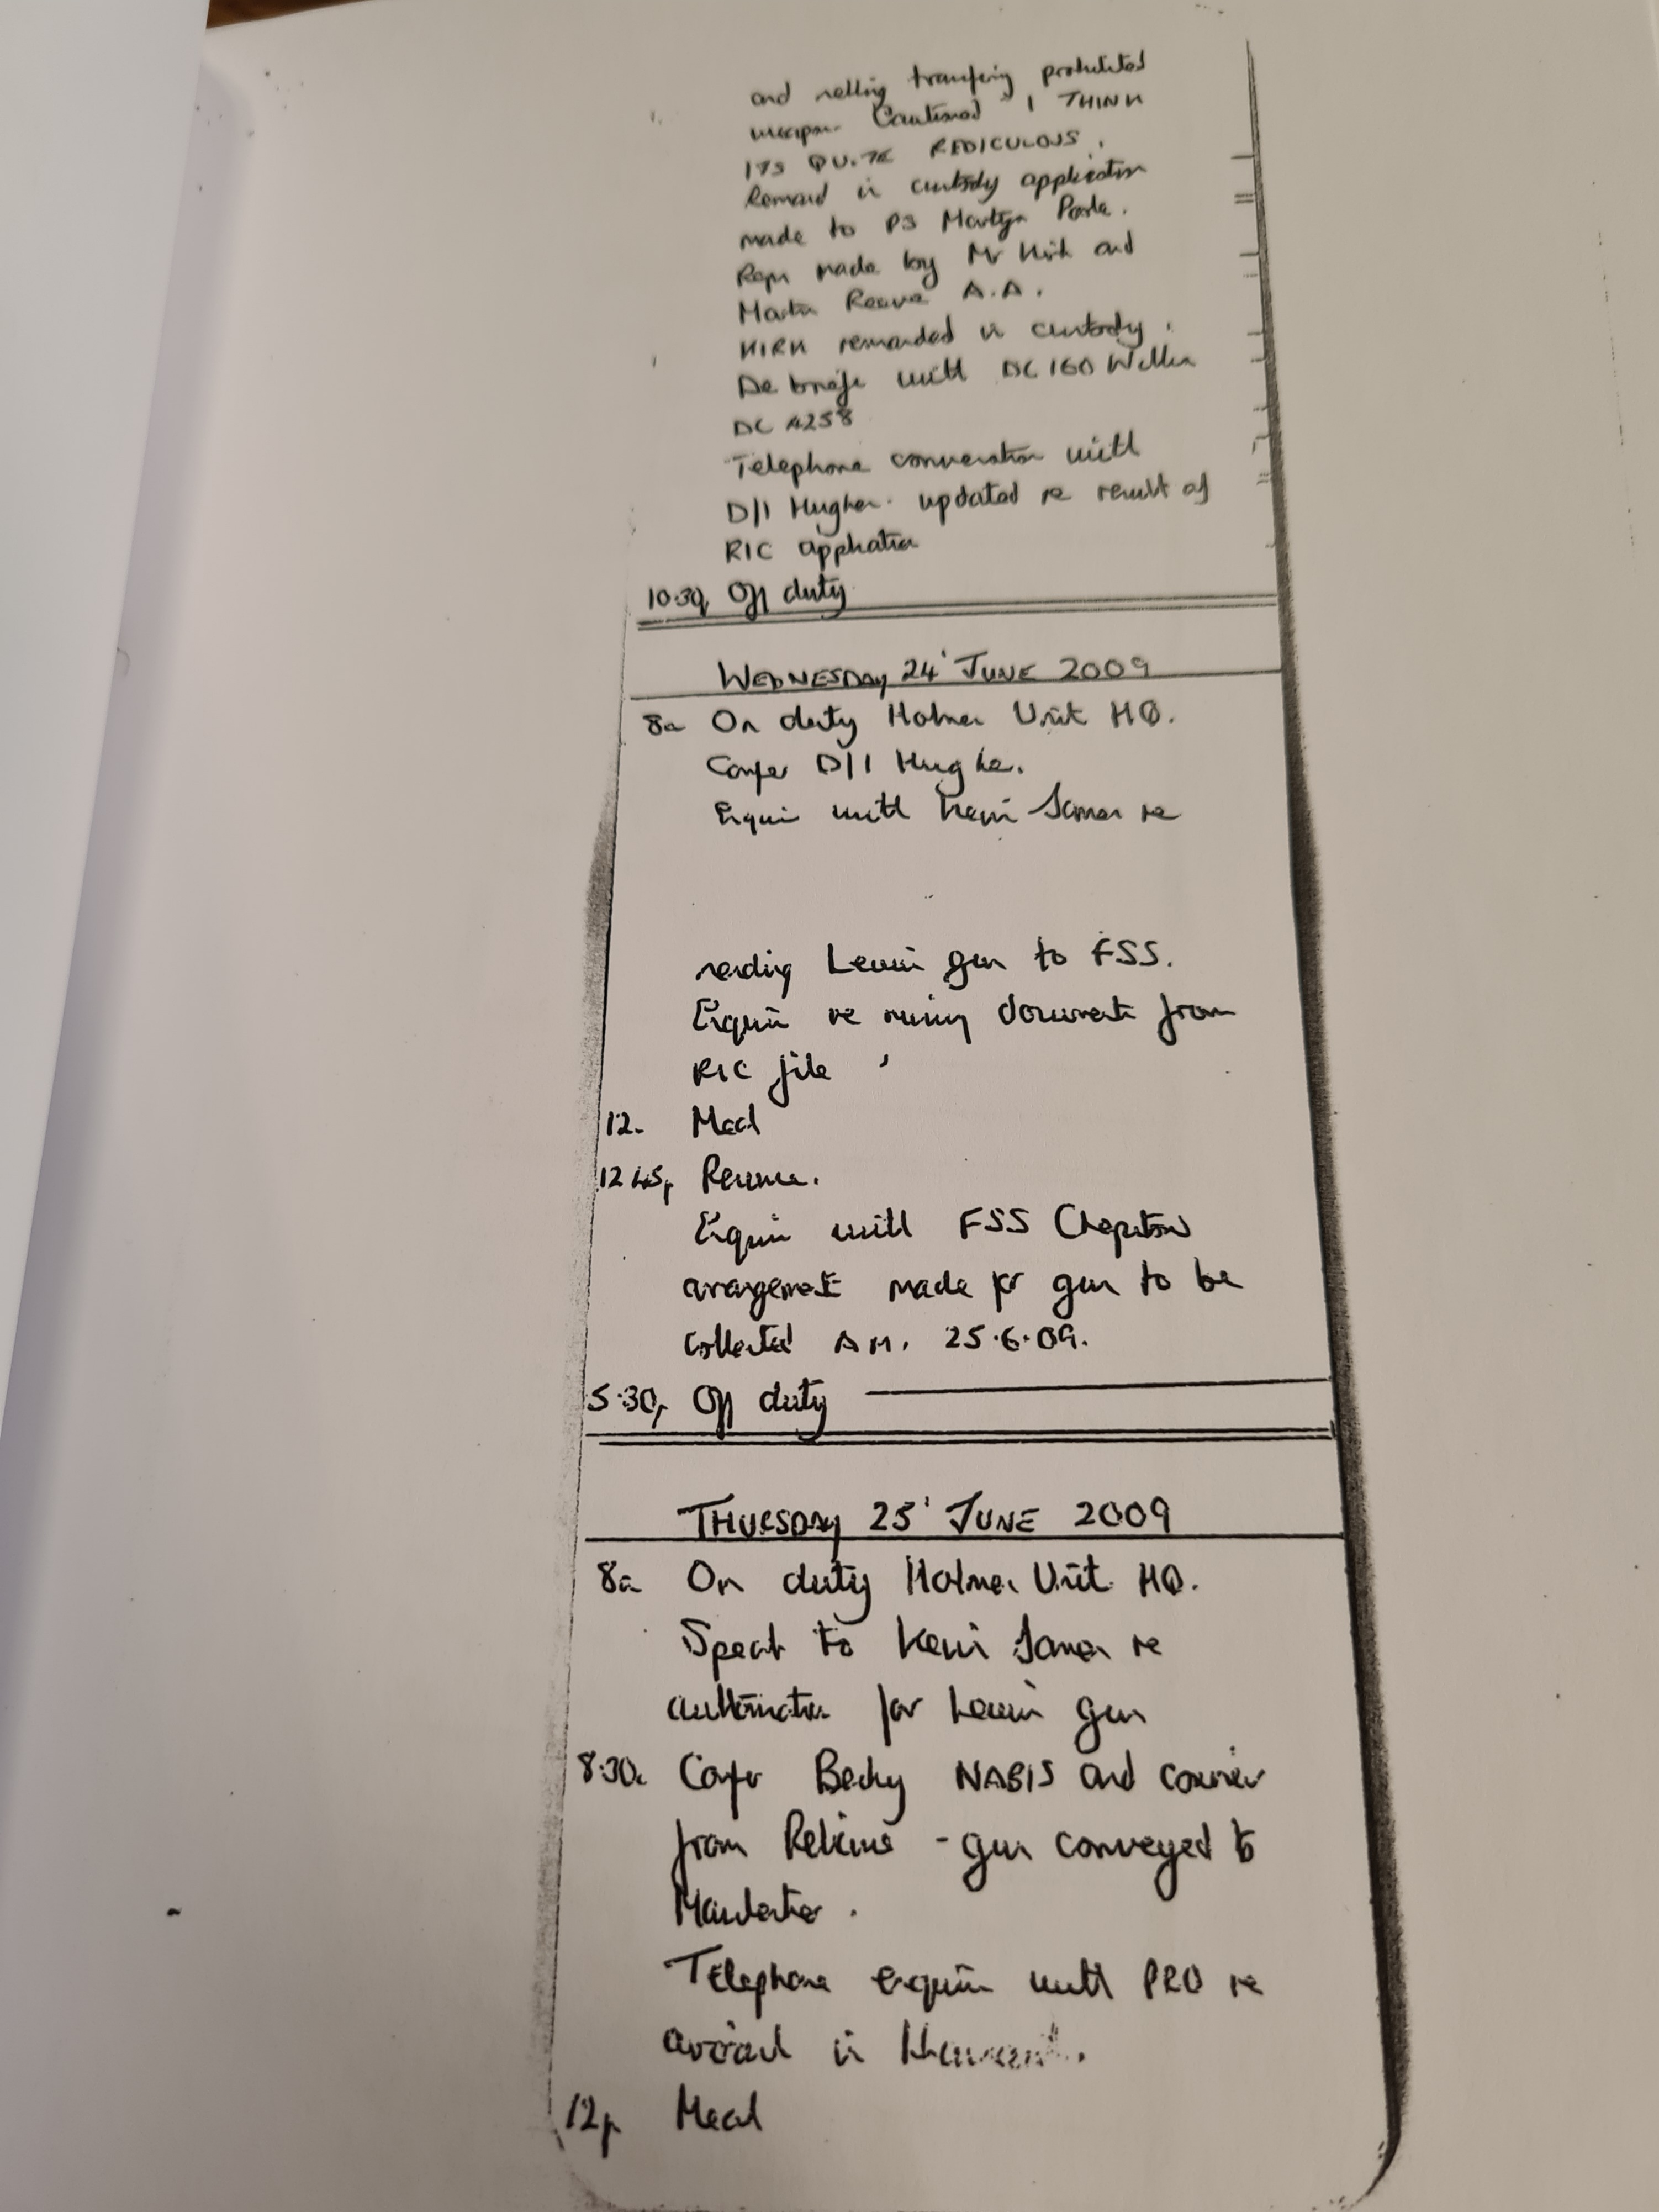 and selling transfering prohibited
weapon Cautioned " I THINK
ITS QUITE REDICULOUS.
Remand in custody application
made to PS Martyn
Reps made by Mr Kirk and
Martin Reeve A.A.
KIRK remanded in custody.
De brief with DC 160
DC 4258
Telephone conversation with
D/I Hughes. updated re result of
RIC application
10.30p Off duty
WEDNESDAY 24' JUNE 2009
8a On duty Holmes Unit HQ.
Confer D/I Hughes.
Enquiries with Kevin James re
sending Lewis gun to FSS.
Enquiries re missing documents from
RIC file
12. Meal
12 45p Resume.
Enquiries with FSS Chepstow
arrangements made for gun to be
collected AM. 25.6.09.
5.30p Off duty
THURSDAY 25' JUNE 2009
8a On duty Holmes Unit HQ.
Speak to Kevin James re
authorisation for Lewis gun
8.30a Confer Becky NABIS and courier
from - gun conveyed to
Manchester.
Telephone enquiries with PRO re
in
12p Meal